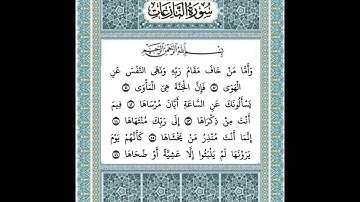 سُورَةُ النَّازِعَاتِ
بِسْمِ اللَّهِ الرَّحْمَٰنِ الرَّحِيمِ
وَأَمَّا مَنْ خَافَ مَقَامَ رَبِّهِ وَنَهَى النَّفْسَ عَنِ
الْهَوَى ٤٠ فَإِنَّ الْجَنَّةَ هِيَ الْمَأْوَى ٤١
يَسْأَلُونَكَ عَنِ السَّاعَةِ أَيَّانَ مُرْسَاهَا ٤٢ فِيمَ
أَنْتَ مِنْ ذِكْرَاهَا ٤٣ إِلَى رَبِّكَ مُنْتَهَاهَا ٤٤
إِنَّمَا أَنْتَ مُنْذِرُ مَنْ يَخْشَاهَا ٤٥ كَأَنَّهُمْ يَوْمَ
يَرَوْنَهَا لَمْ يَلْبَثُوا إِلَّا عَشِيَّةً أَوْ ضُحَاهَا ٤٦